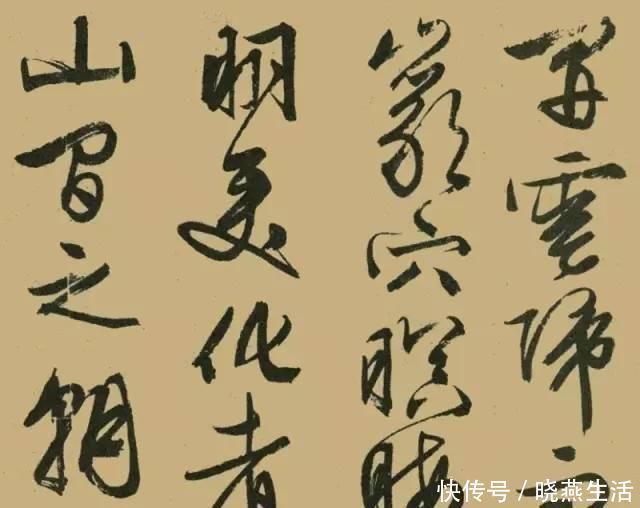 開雲歸而
巖穴暝晦
明變化者
山間之朝
快传号/晓燕生活